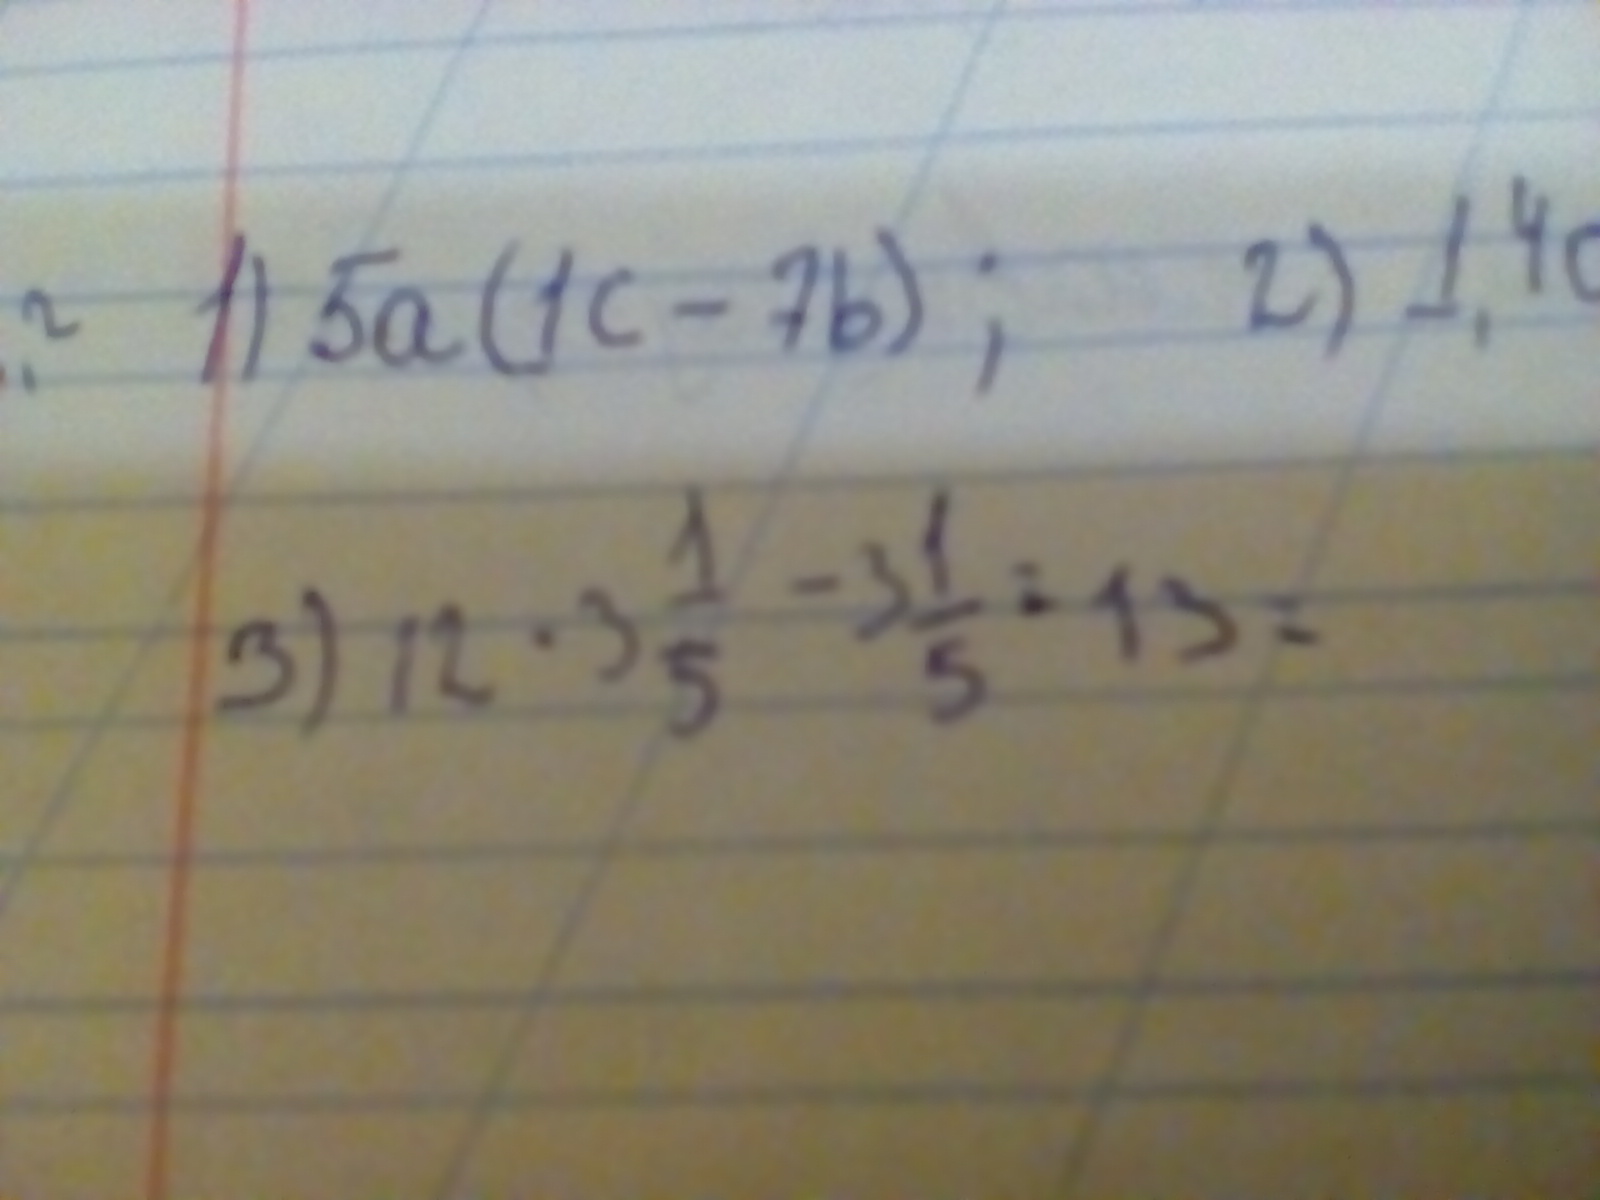 .2 1) 5a(1c - 7b) ; 2) 1,4c
3) 12 · 3 1/5 - 3 1/5 : 13 =